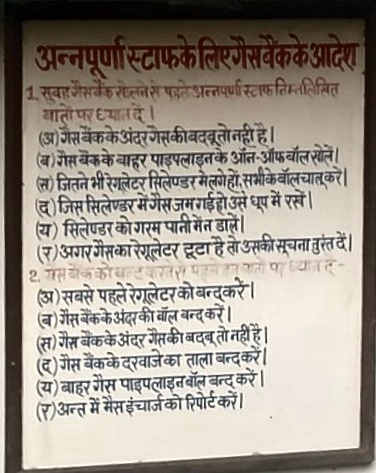 अन्नपूर्णा स्टाफ के लिए गैस बैंक के आदेश
1. सुबह गैस बैंक खोलने से पहले अन्नपूर्णा स्टाफ निम्नलिखित
बातों पर ध्यान दें।
(अ) गैस बैंक के अंदर गैस की बदबू तो नहीं है।
(ब) गैस बैंक के बाहर पाइपलाइन के ऑन-ऑफ बॉल खोलें।
(स) जितने भी रेगूलेटर सिलेण्डर में लगे हों, सभी के बॉल चालू करें।
(द) जिस सिलेण्डर में गैस जम गई हो उसे धूप में रखें।
(य) सिलेण्डर को गरम पानी में न डालें।
(र) अगर गैस का रेगूलेटर टूटा है तो उसकी सूचना तुरंत दें।
2. गैस बैंक को बन्द करने से पहले इन बातों पर ध्यान दें -
(अ) सबसे पहले रेगूलेटर को बन्द करें।
(ब) गैस बैंक के अंदर की बॉल बन्द करें।
(स) गैस बैंक के अंदर गैस की बदबू तो नहीं है।
(द) गैस बैंक के दरवाजे का ताला बन्द करें।
(य) बाहर गैस पाइपलाइन बॉल बन्द करें।
(र) अन्त में मैस इंचार्ज को रिपोर्ट करें।